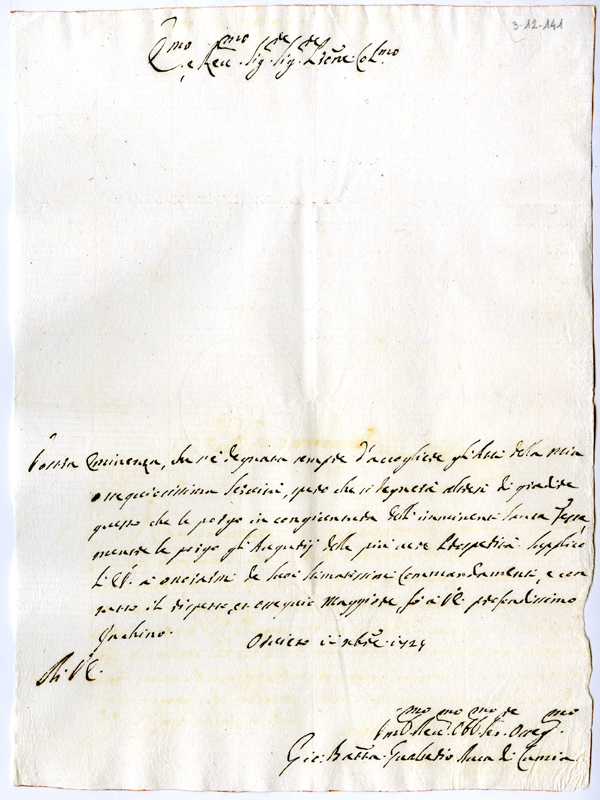 3-12-141
E.mo e Reu.mo Sig.re Sig.re P.rone Col.mo
Vostra Eminenza, che s'è degnata sempre d'accogliere gli Atti della mia
ossequiosissima seruitù, spero che si degnerà altresì di gradire
questo che le porgo in congiuntura dell'imminenti Sante Feste
mentre le porgo gli Augurij delle più uere Prosperità. Supplico
l'E.V. a onorarmi de suoi stimatissimi Commandamenti, e con
tutto il rispetto, et ossequio Maggiore, fò a V.E. profondissimo
Inchino.
Oruieto Xmbre
Di V.E.
Reu.mo Obb.mo
Gio: Batta Gualterio Duca di Cumia